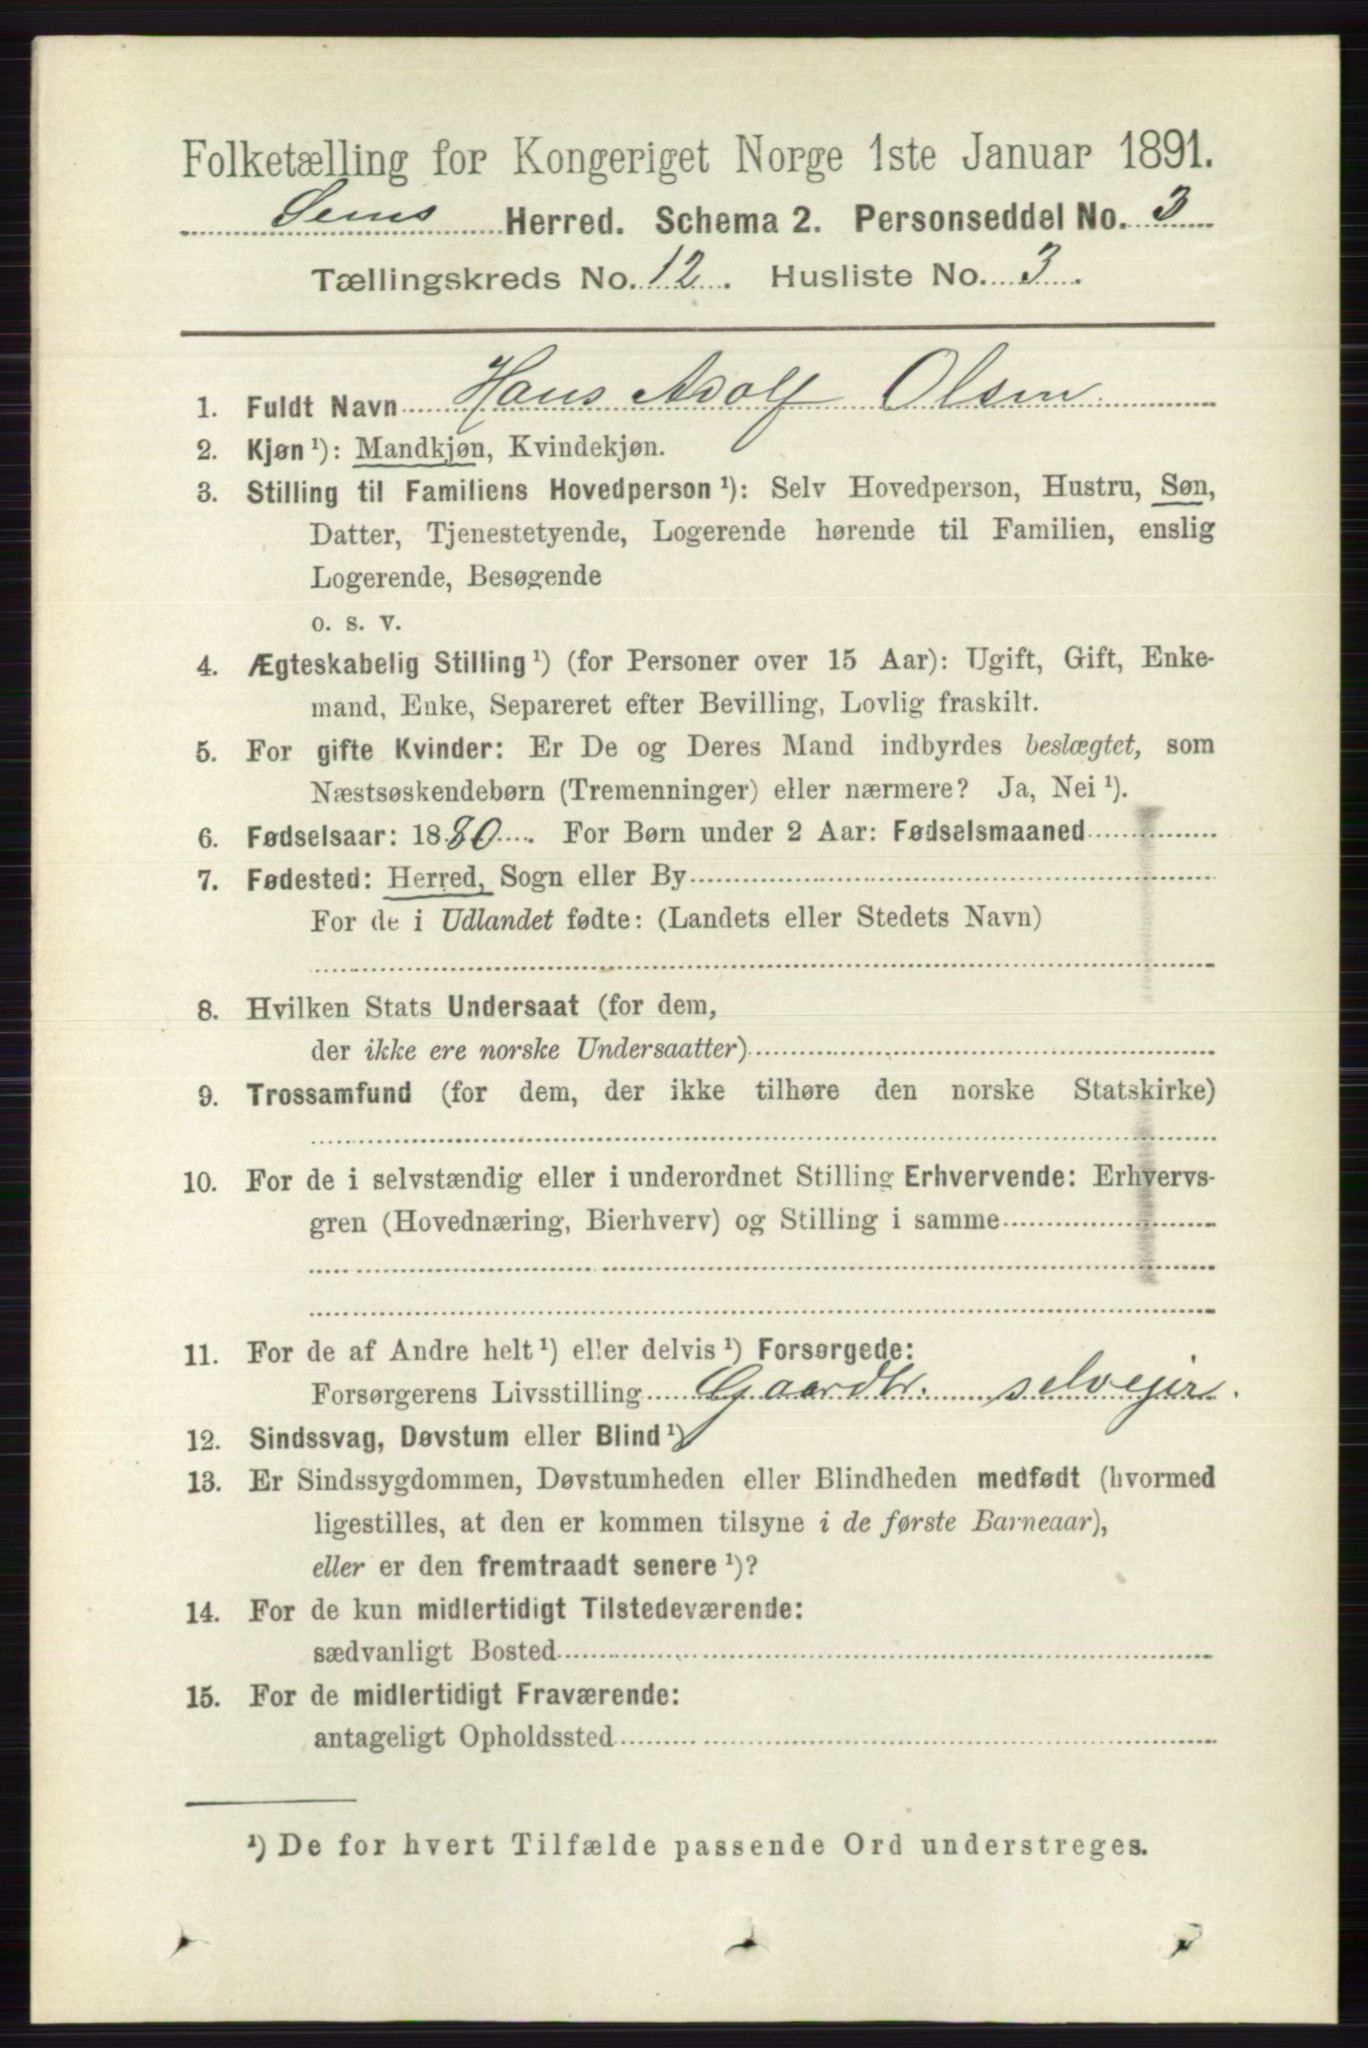 Folketælling for Kongeriget Norge 1ste Januar 1891.
Sems Herred. Schema 2. Personseddel No. 3
Tællingskreds No. 12. Husliste No. 3.
1. Fuldt Navn Hans Adolf Olsen
2. Kjøn ¹): Mandkjøn, Kvindekjøn.
3. Stilling til Familiens Hovedperson ¹): Selv Hovedperson, Hustru, Søn,
Datter, Tjenestetyende, Logerende hørende til Familien, enslig
Logerende, Besøgende
o. s. v.
4. Ægteskabelig Stilling ¹) (for Personer over 15 Aar): Ugift, Gift, Enke-
mand, Enke, Separeret efter Bevilling, Lovlig fraskilt.
5. For gifte Kvinder: Er De og Deres Mand indbyrdes beslægtet, som
Næstsøskendebørn (Tremenninger) eller nærmere? Ja, Nei ¹).
6. Fødselsaar: 1880. For Børn under 2 Aar: Fødselsmaaned
7. Fødested: Herred, Sogn eller By
For de i Udlandet fødte: (Landets eller Stedets Navn)
8. Hvilken Stats Undersaat (for dem,
der ikke ere norske Undersaatter)
9. Trossamfund (for dem, der ikke tilhøre den norske Statskirke)
10. For de i selvstændig eller i underordnet Stilling Erhvervende: Erhvervs-
gren (Hovednæring, Bierhverv) og Stilling i samme
11. For de af Andre helt ¹) eller delvis ¹) Forsørgede:
Forsørgerens Livsstilling Gaardbr. selvejer.
12. Sindssvag, Døvstum eller Blind ¹)
13. Er Sindssygdommen, Døvstumheden eller Blindheden medfødt (hvormed
ligestilles, at den er kommen tilsyne i de første Barneaar),
eller er den fremtraadt senere ¹)?
14. For de kun midlertidigt Tilstedeværende:
sædvanligt Bosted
15. For de midlertidigt Fraværende:
antageligt Opholdssted
¹) De for hvert Tilfælde passende Ord understreges.